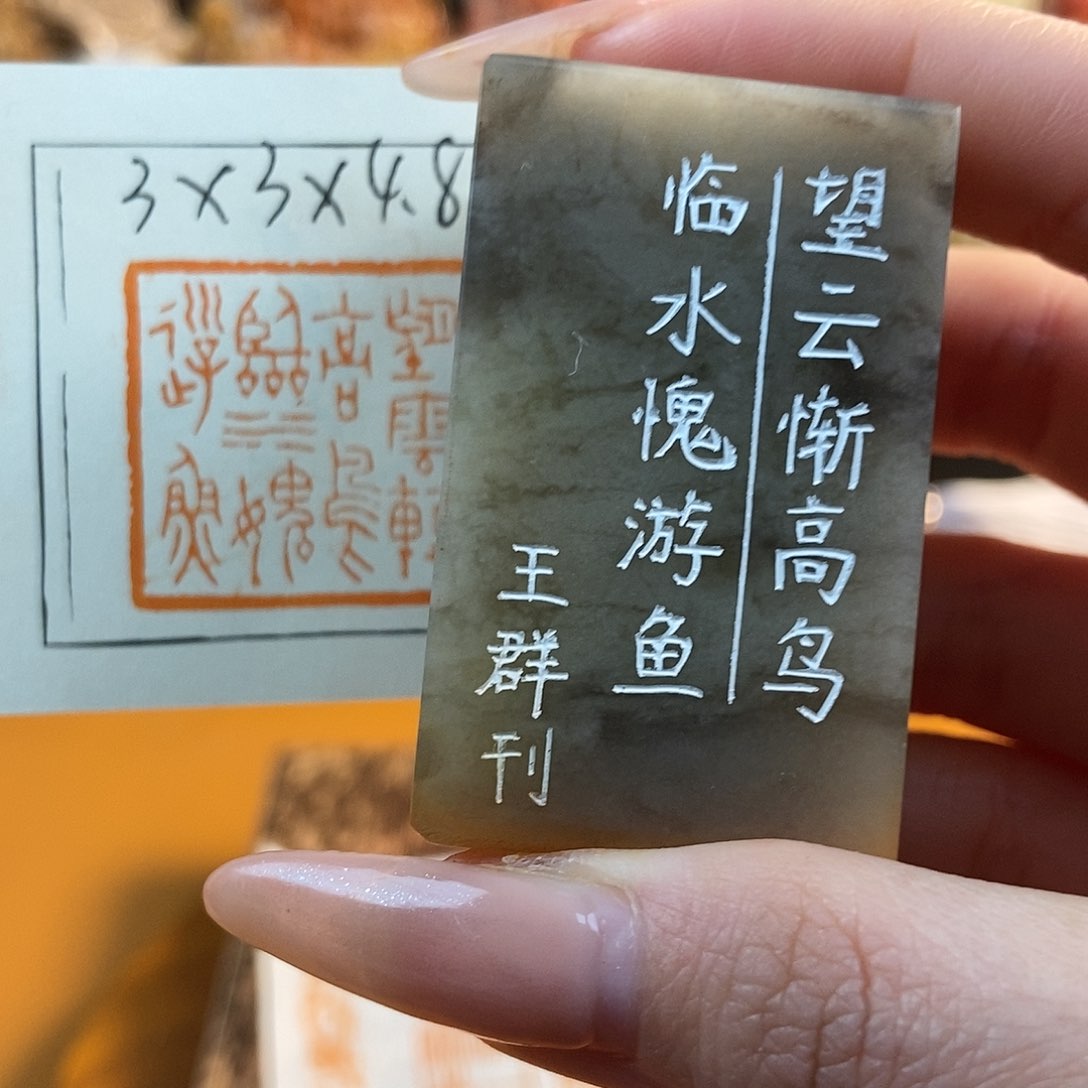 3×3×4.8
望雲
高鳥
臨水媿
遊魚
望云惭高鸟
临水愧游鱼
王群刊